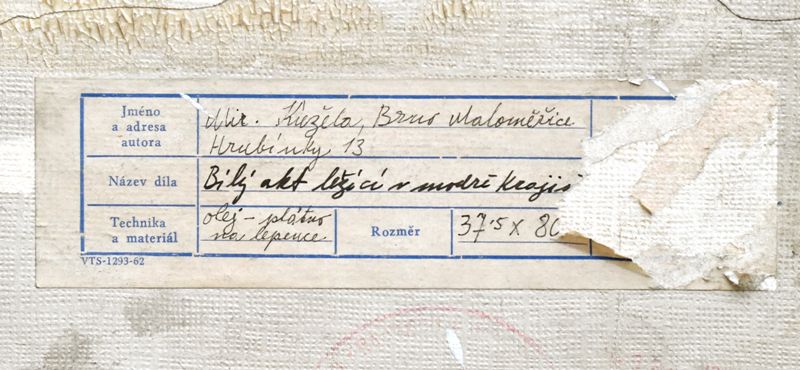 Jméno
a adresa
autora
Mir. Kužela, Brno Maloměřice
Hrubínky 13
Název díla
Bílý akt ležící v modré
Technika
a materiál
olej - plátno
na lepence
Rozměr
37.5 x 80
VTS-1293-62